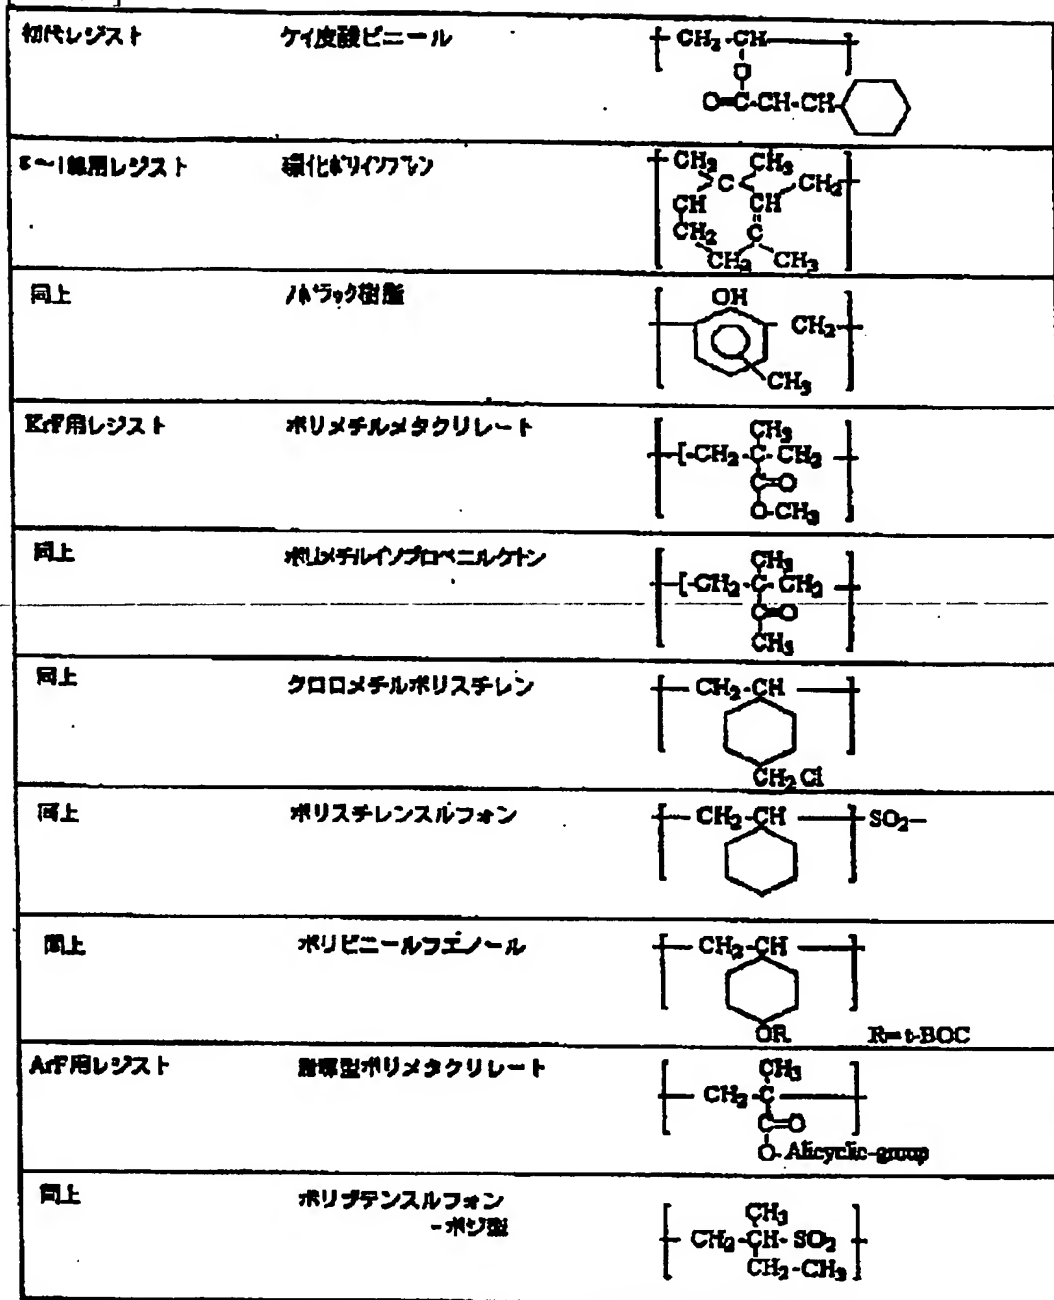 初代レジスト ケイ皮酸ビニール
CH2-CH
O
O=C-CH-CH
g～i線用レジスト 環化ポリイソプレン
CH2 CH3
C CH2
CH CH
CH2 C
CH2 CH3
同上 ノボラック樹脂
OH
CH2
CH3
KrF用レジスト ポリメチルメタクリレート
CH3
[-CH2-C-CH2
C=O
O-CH3
同上 ポリメチルイソプロペニルケトン
CH3
[-CH2-C-CH2
C=O
CH3
同上 クロロメチルポリスチレン
CH2-CH
CH2Cl
同上 ポリスチレンスルフォン
CH2-CH SO2-
同上 ポリビニールフエノール
CH2-CH
OR R=t-BOC
ArF用レジスト 脂環型ポリメタクリレート
CH3
CH2-C
C=O
O-Alicyclic-group
同上 ポリブテンスルフォン
-ポジ型
CH3
CH2-CH-SO2
CH2-CH3